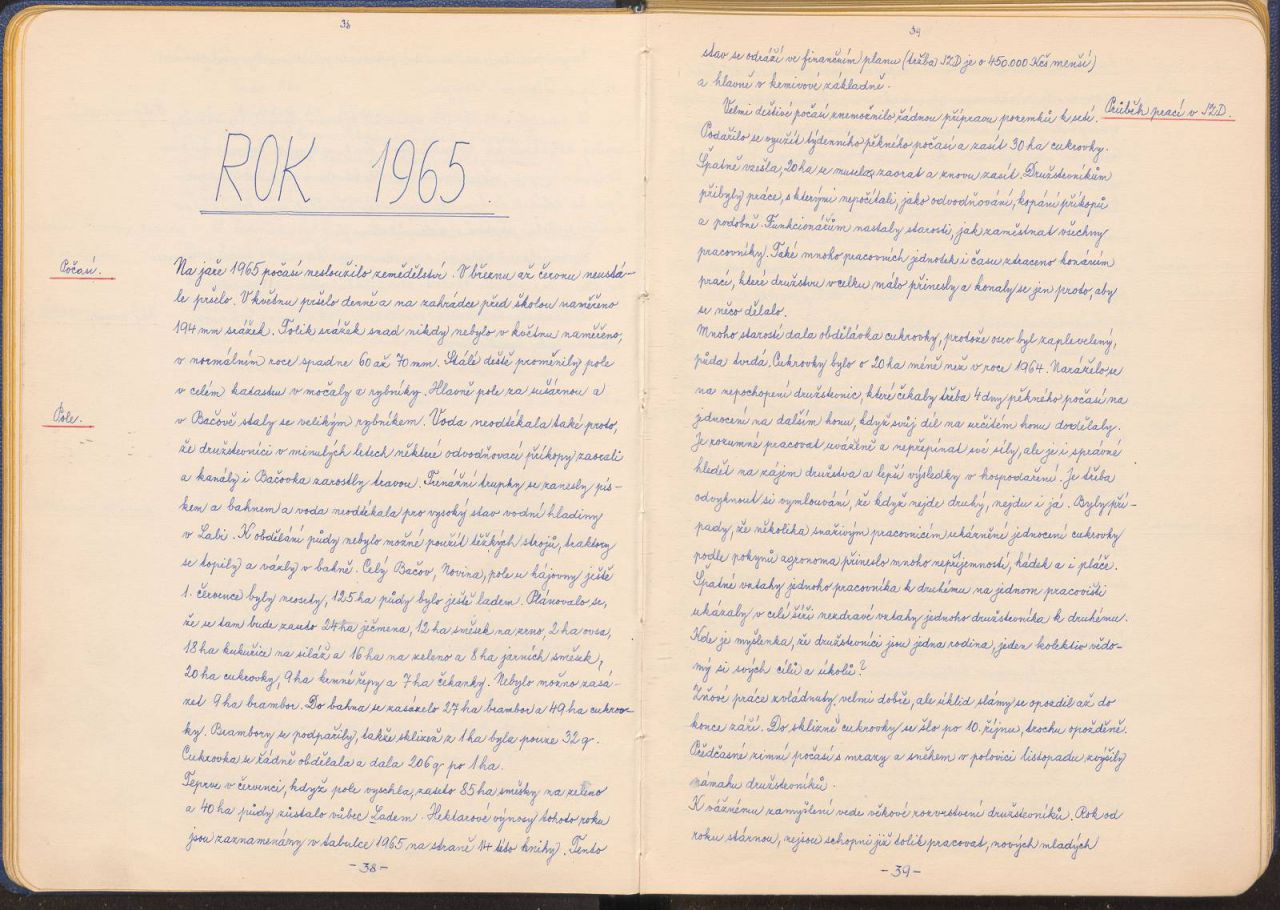 38
ROK 1965.
Počasí.
Na jaře 1965 počasí nesloužilo zemědělství. V březnu až červnu neustá-
le pršelo. V květnu pršelo denně a na zahrádce před školou naměřeno
194 mm srážek. Tolik srážek snad nikdy nebylo v květnu naměřeno,
v normálním roce spadne 60 až 70 mm. Stálé deště proměnily pole
v celém katastru v močály a rybníky. Hlavně pole za sušárnou a
Pole.
v Bačově staly se velikým rybníkem. Voda neodtékala také proto,
že družstevníci v minulých letech některé odvodňovací příkopy zaorali
a kanály i Bačovka zarostly travou. Trenážní trupky se zanesly pís-
kem a bahnem a voda neodtékala pro vysoký stav vodní hladiny
v Labi. K obdělání půdy nebylo možné použít těžkých strojů, traktory
se topily a vázly v bahně. Celý Bačov, Novina, pole u hájovny ještě
1. července byly neosety, 125 ha půdy bylo ještě ladem. Plánovalo se,
že se tam bude zaseto 24 ha ječmena, 12 ha směsek na zrno, 2 ha ovsa,
18 ha kukuřice na siláž a 16 ha na zeleno a 8 ha jarních směsek,
20 ha cukrovky, 9 ha krmné řepy a 7 ha čekanky. Nebylo možno zasá-
zet 9 ha brambor. Do bahna se zasázelo 27 ha brambor a 49 ha cukrov-
ky. Brambory se podpařily, takže sklizeň z 1 ha byla pouze 32 q.
Cukrovka se řádně obdělala a dala 206 q po 1 ha.
Teprve v červenci, když pole vyschla, zaseto 85 ha směsky na zeleno
a 40 ha půdy zůstalo vůbec Ladem. Hektarové výnosy tohoto roku
jsou zaznamenány v tabulce 1965 na straně 14 této knihy. Tento
-38-
39
stav se odráží ve finančním plánu (tržba JZD je o 450.000 Kčs menší)
a hlavně v krmivové základně.
Průběh prací v JZD.
Velmi deštivé počasí znemožnilo řádnou přípravu pozemků k setí.
Podařilo se využít týdenního pěkného počasí a zasít 30 ha cukrovky.
Špatně vzešla, 20 ha se musela zaorat a znovu zasít. Družstevníkům
přibyly práce, s kterými nepočítali, jako odvodňování, kopání příkopů
a podobně. Funkcionářům nastaly starosti, jak zaměstnat všechny
pracovníky. Také mnoho pracovních jednotek i času ztraceno konáním
prací, které družstvu v celku málo přinesly a konaly se jen proto, aby
se něco dělalo.
Mnoho starostí dala obdělávka cukrovky, protože osev byl zaplevelený,
půda tvrdá. Cukrovky bylo o 20 ha méně než v roce 1964. Naráželo se
na nepochopení družstevnic, které čekaly třeba 4 dny pěkného počasí na
jednocení na dalším honu, když svůj díl na určitém honu dodělaly.
Je rozumné pracovat uvážlivě a nepřepínat své síly, ale je i správné
hledět na zájem družstva a lepší výsledky v hospodaření. Je třeba
odvyknout si vymlouvání, že když nejde druhý, nejdu i já. Byly pří-
pady, že několika snaživým pracovnicím ukázněné jednocení cukrovky
podle pokynů agronoma přineslo mnoho nepříjemností, hádek a i pláče.
Špatné vztahy jednoho pracovníka k druhému na jednom pracovišti
ukázaly v celé šíři nezdravé vztahy jednoho družstevníka k druhému.
Kde je myšlenka, že družstevníci jsou jedna rodina, jeden kolektiv vědo-
mý si svých cílů a úkolů?
Žňové práce zvládnuty velmi dobře, ale úklid slámy se opozdil až do
konce září. Do sklizně cukrovky se šlo po 10. říjnu, trochu opožděně.
Předčasné zimní počasí s mrazy a sněhem v polovici listopadu zvýšily
námahu družstevníků.
K vážnému zamyšlení vede věkové rozvrstvení družstevníků. Rok od
roku stárnou, nejsou schopni již tolik pracovat, nových mladých
-39-